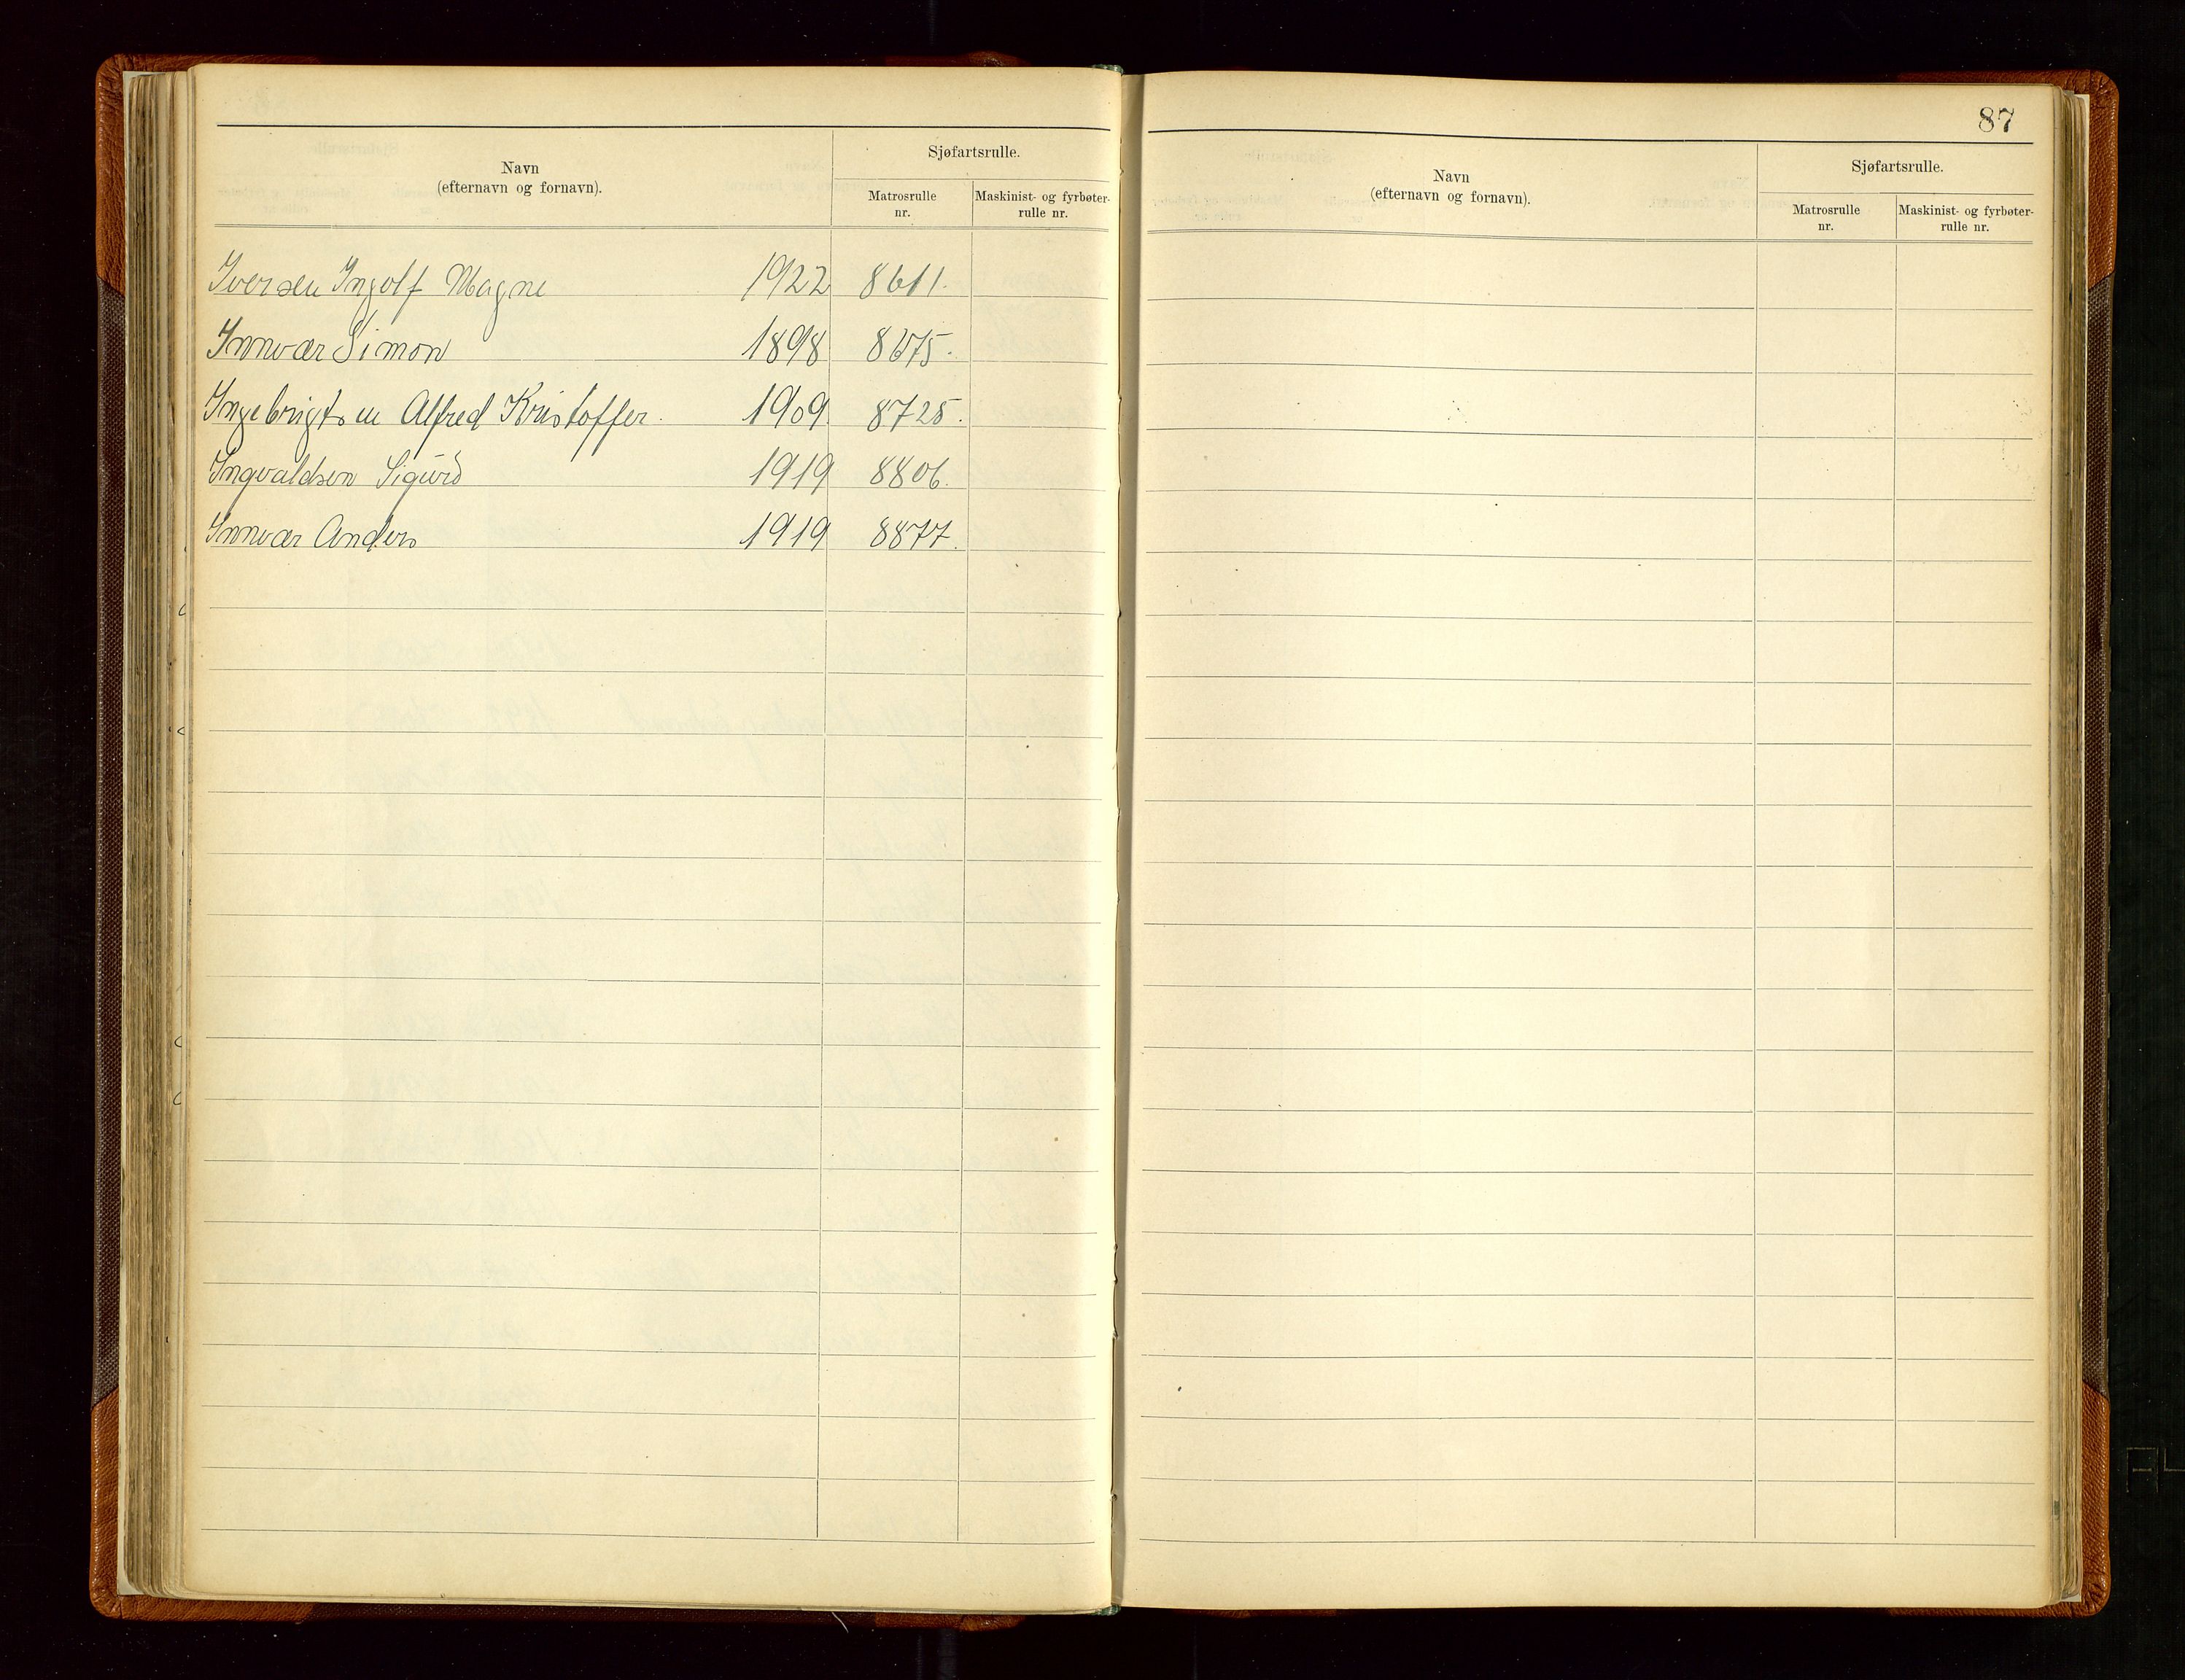 Navn
(efternavn og fornavn).
Sjøfartsrulle.
Matrosrulle
nr.
Maskinist- og fyrbøter-
rulle nr.
Iversen Ingolf Magne 1922 8611.
Innvær Simon 1898 8675.
Ingebrigtsen Alfred Kristoffer. 1909 8725.
Ingvaldsen Sigurd 1919 8806.
Innvær Anders 1919 8877.
87
Navn
(efternavn og fornavn).
Sjøfartsrulle.
Matrosrulle
nr.
Maskinist- og fyrbøter-
rulle nr.